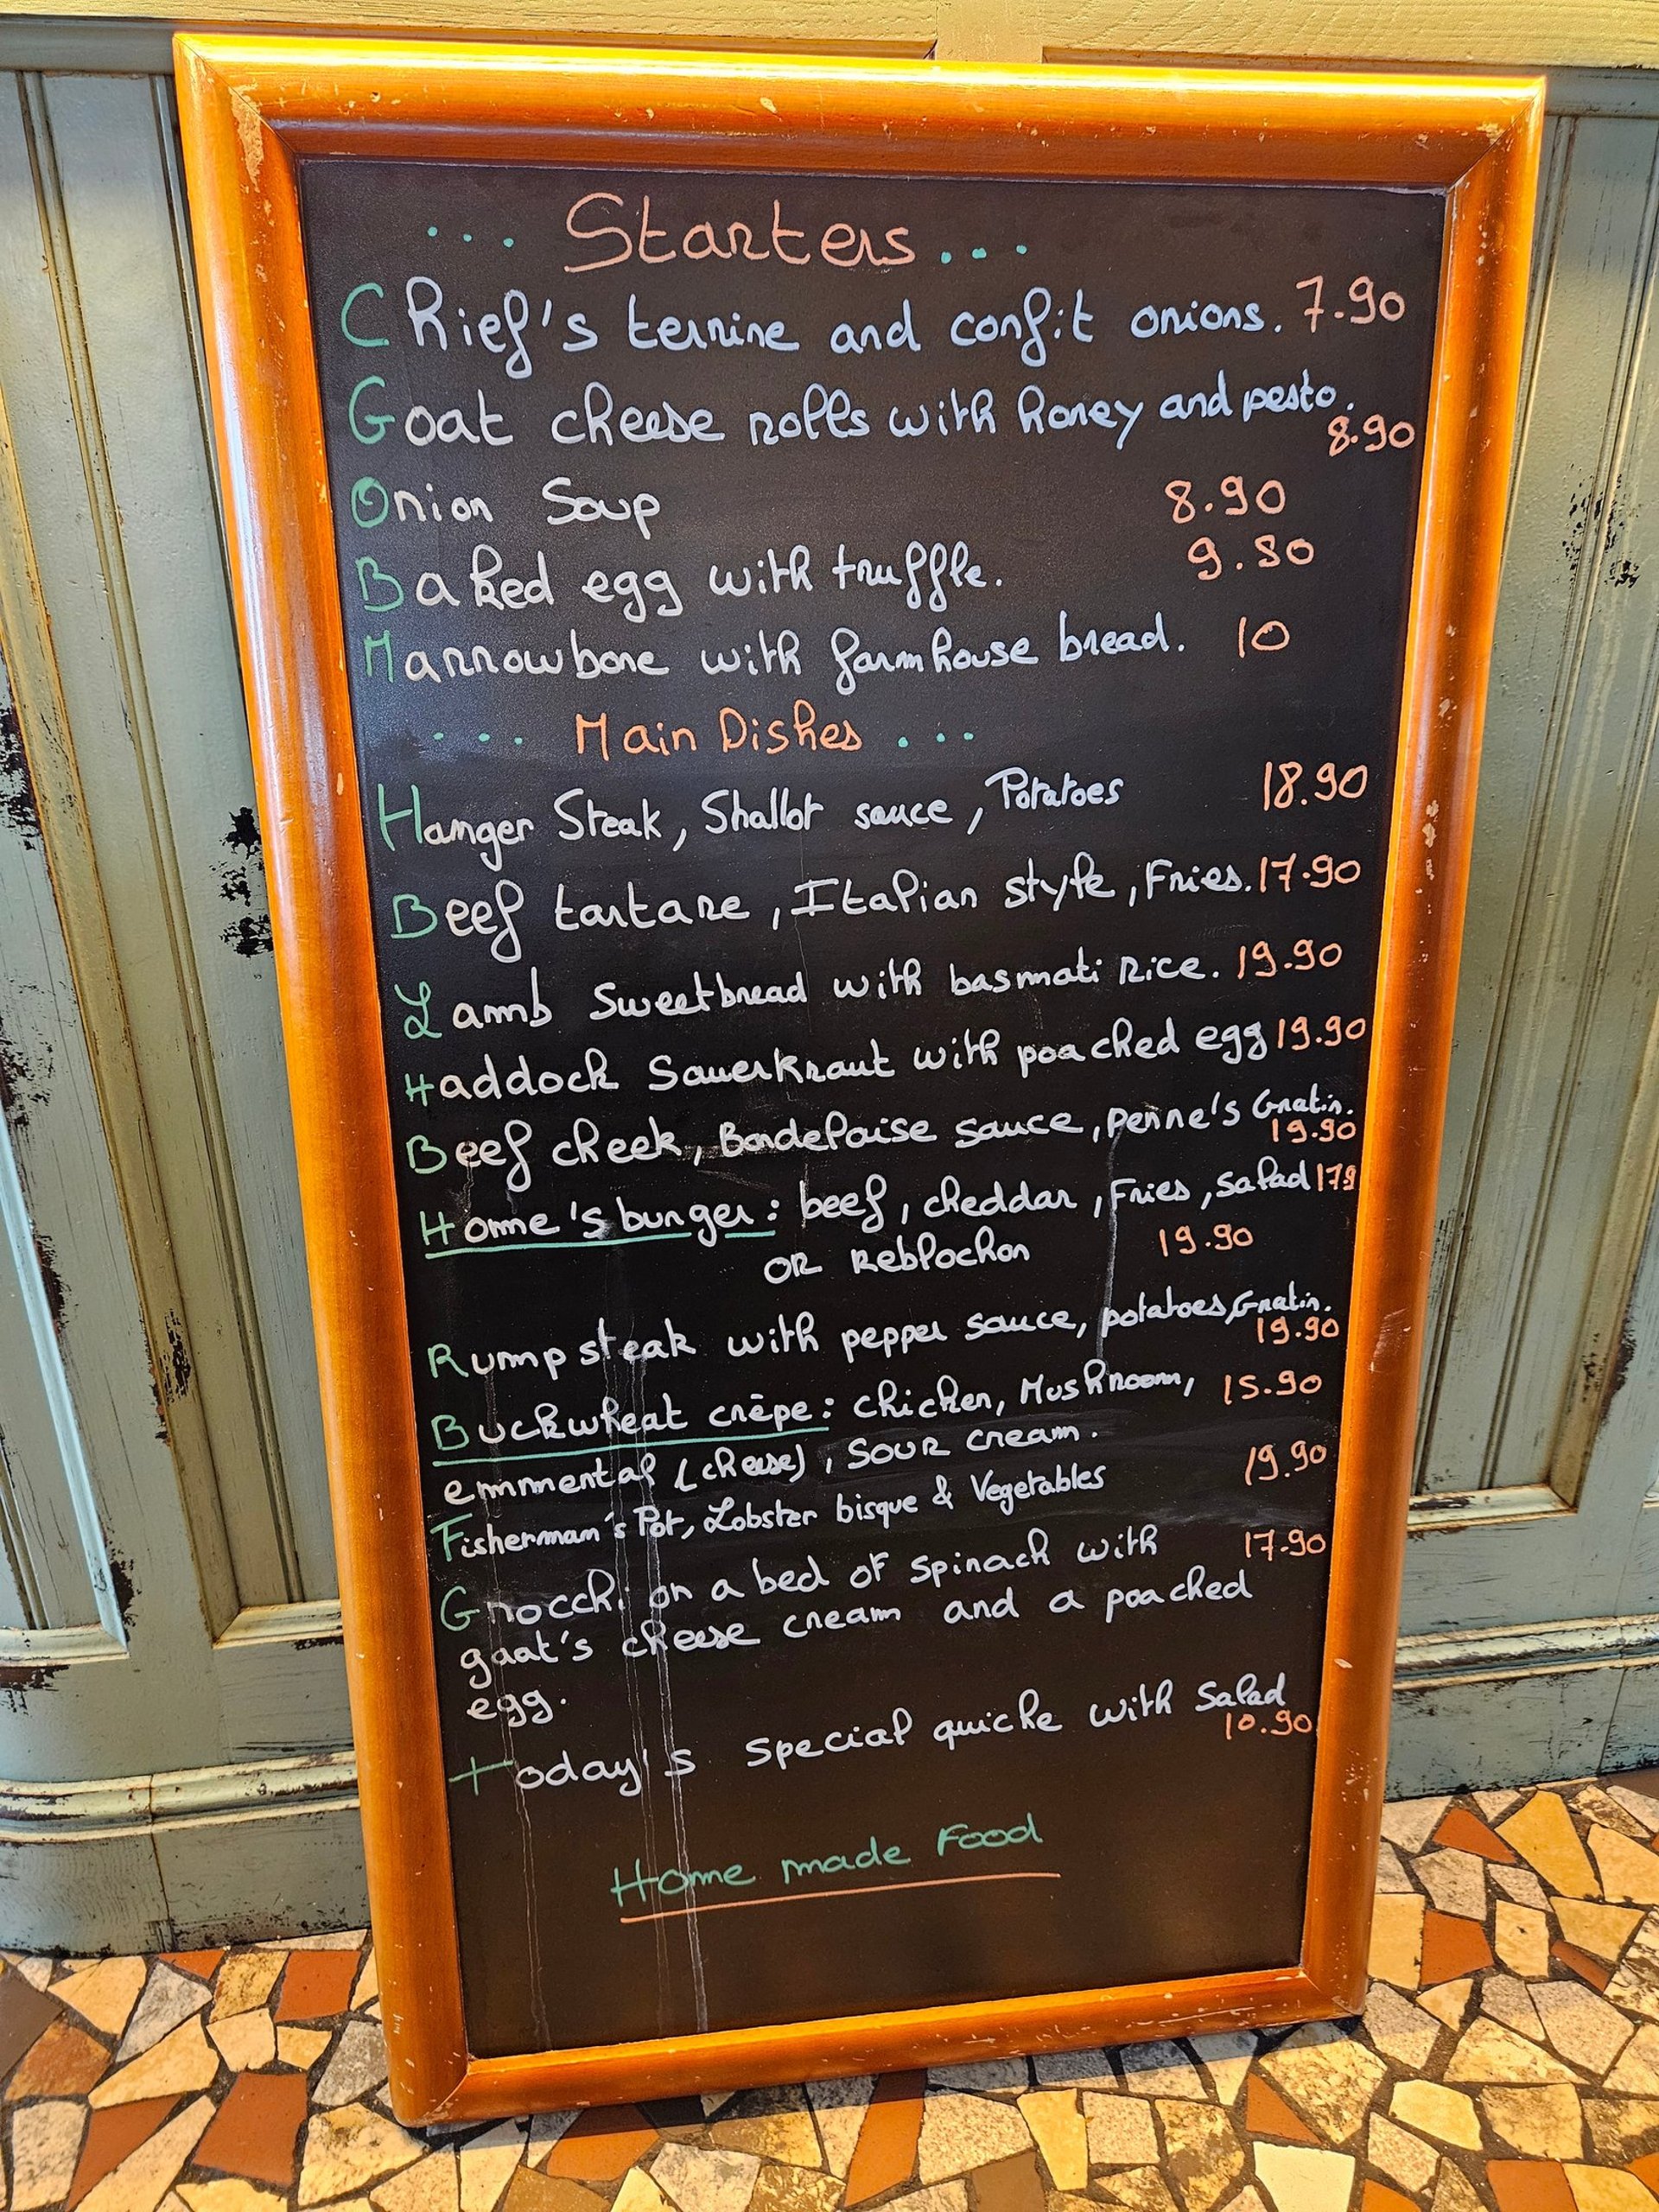 ... Starters...
Chief's terrine and confit onions. 7.90
Goat cheese rolls with honey and pesto.
8.90
Onion Soup 8.90
Baked egg with truffle. 9.80
Marrowbone with farmhouse bread. 10
... Main Dishes ...
Hanger Steak, Shallot sauce, Potatoes 18.90
Beef tartare, Italian style, Fries. 17.90
Lamb Sweetbread with basmati Rice. 19.90
Haddock Sauerkraut with poached egg 19.90
Beef cheek, Bordelaise sauce, penne's Gratin.
19.90
Home's burger: beef, cheddar, Fries, salad 17.9
OR Reblochon 19.90
Rumpsteak with pepper sauce, potatoes, Gratin.
19.90
Buckwheat crêpe: chicken, Mushroom, 15.90
emmental (cheese), SOUR cream.
Fisherman's Pot, Lobster bisque & Vegetables 19.90
Gnocchi on a bed of spinach with 17.90
gaat's cheese cream and a poached
egg.
Today's special quiche with Salad
10.90
Home made Food